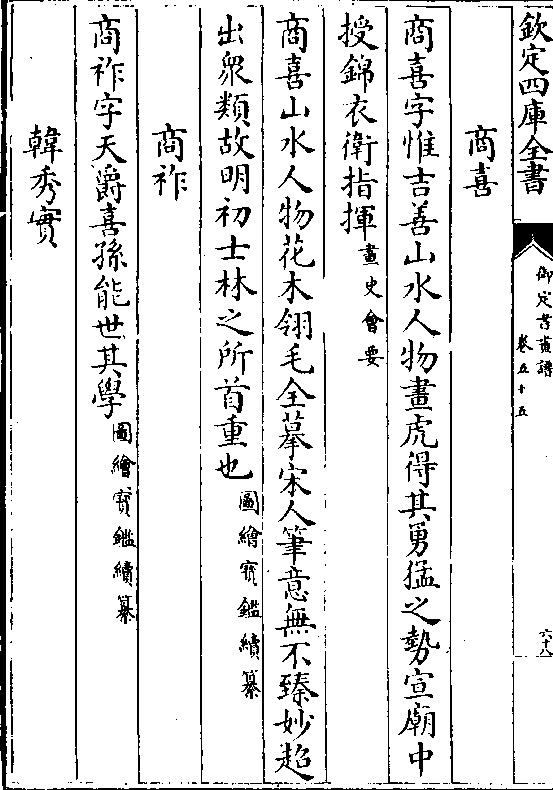 欽定四庫全書
御定書畫譜
卷五十五
六十八
商喜
商喜字惟吉善山水人物畫虎得其勇猛之勢宣廟中
授錦衣衛指揮畫史會要
商喜山水人物花木翎毛全摹宋人筆意無不臻妙超
出衆類故明初士林之所首重也圖繪寶鑑續纂
商祚
商祚字天爵喜孫能世其學圖繪寶鑑續纂
韓秀實